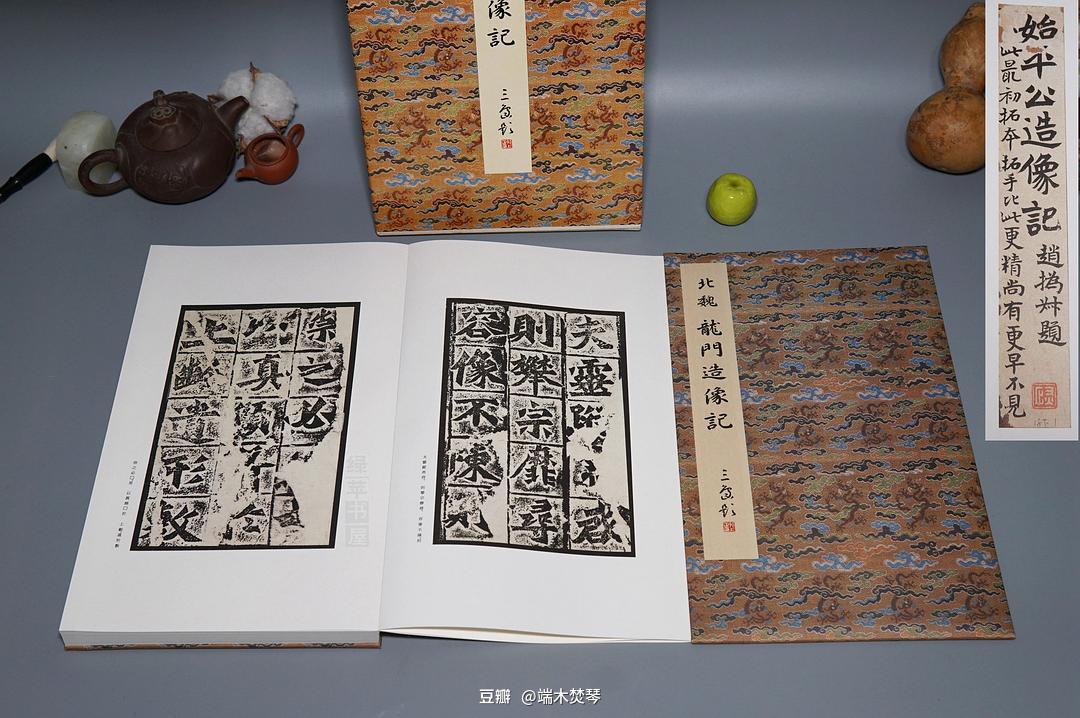 像記
北魏 龍門造像記
始平公造像記 趙撝叔題
此最初拓本拓手比此更精尚有更早不見
夫靈蹤啟
則攀宗靡尋
容像不陳
崇之必
以真顏
上齡遺形敷
绿苹书屋
豆瓣 @端木焚琴